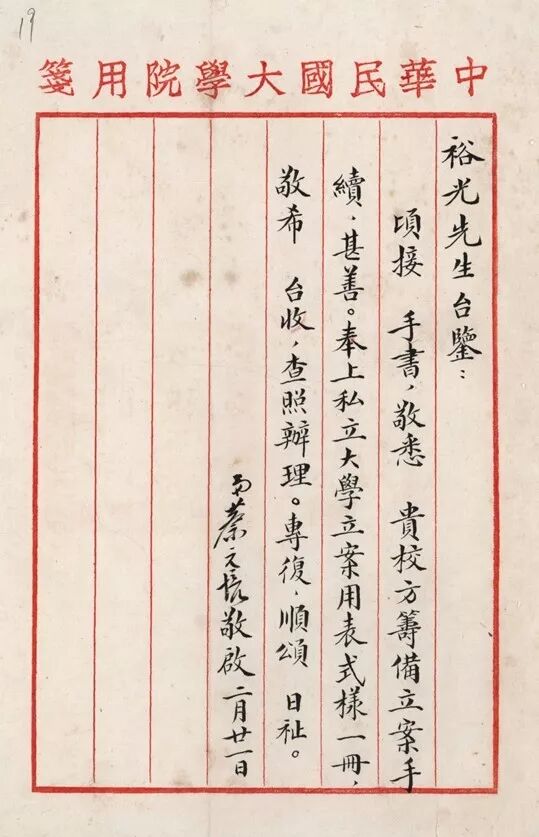 19
中華民國大學院用箋
裕光先生台鑒：
頃接　手書，敬悉　貴校方籌備立案手
續，甚善。奉上私立大學立案用表式樣一冊，
敬希　台收，查照辦理。專復，順頌　日祉。
蔡元培敬啟 二月廿一日